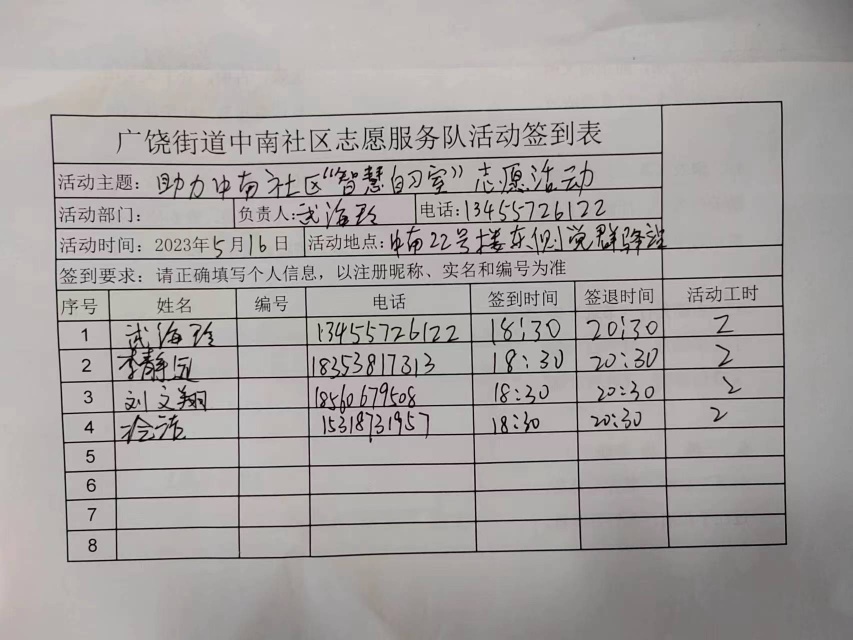 广饶街道中南社区志愿服务队活动签到表
活动主题: 助力中南社区“智慧自习室”志愿活动
活动部门: 负责人: 武海玲 电话: 13455726122
活动时间: 2023年5月16日 活动地点: 中南22号楼东侧党群驿站
签到要求: 请正确填写个人信息，以注册昵称、实名和编号为准
序号 姓名 编号 电话 签到时间 签退时间 活动工时
1 武海玲 13455726122 18:30 20:30 2
2 李静远 18353817313 18:30 20:30 2
3 刘文翔 18560679508 18:30 20:30 2
4 15318731957 18:30 20:30 2
5
6
7
8